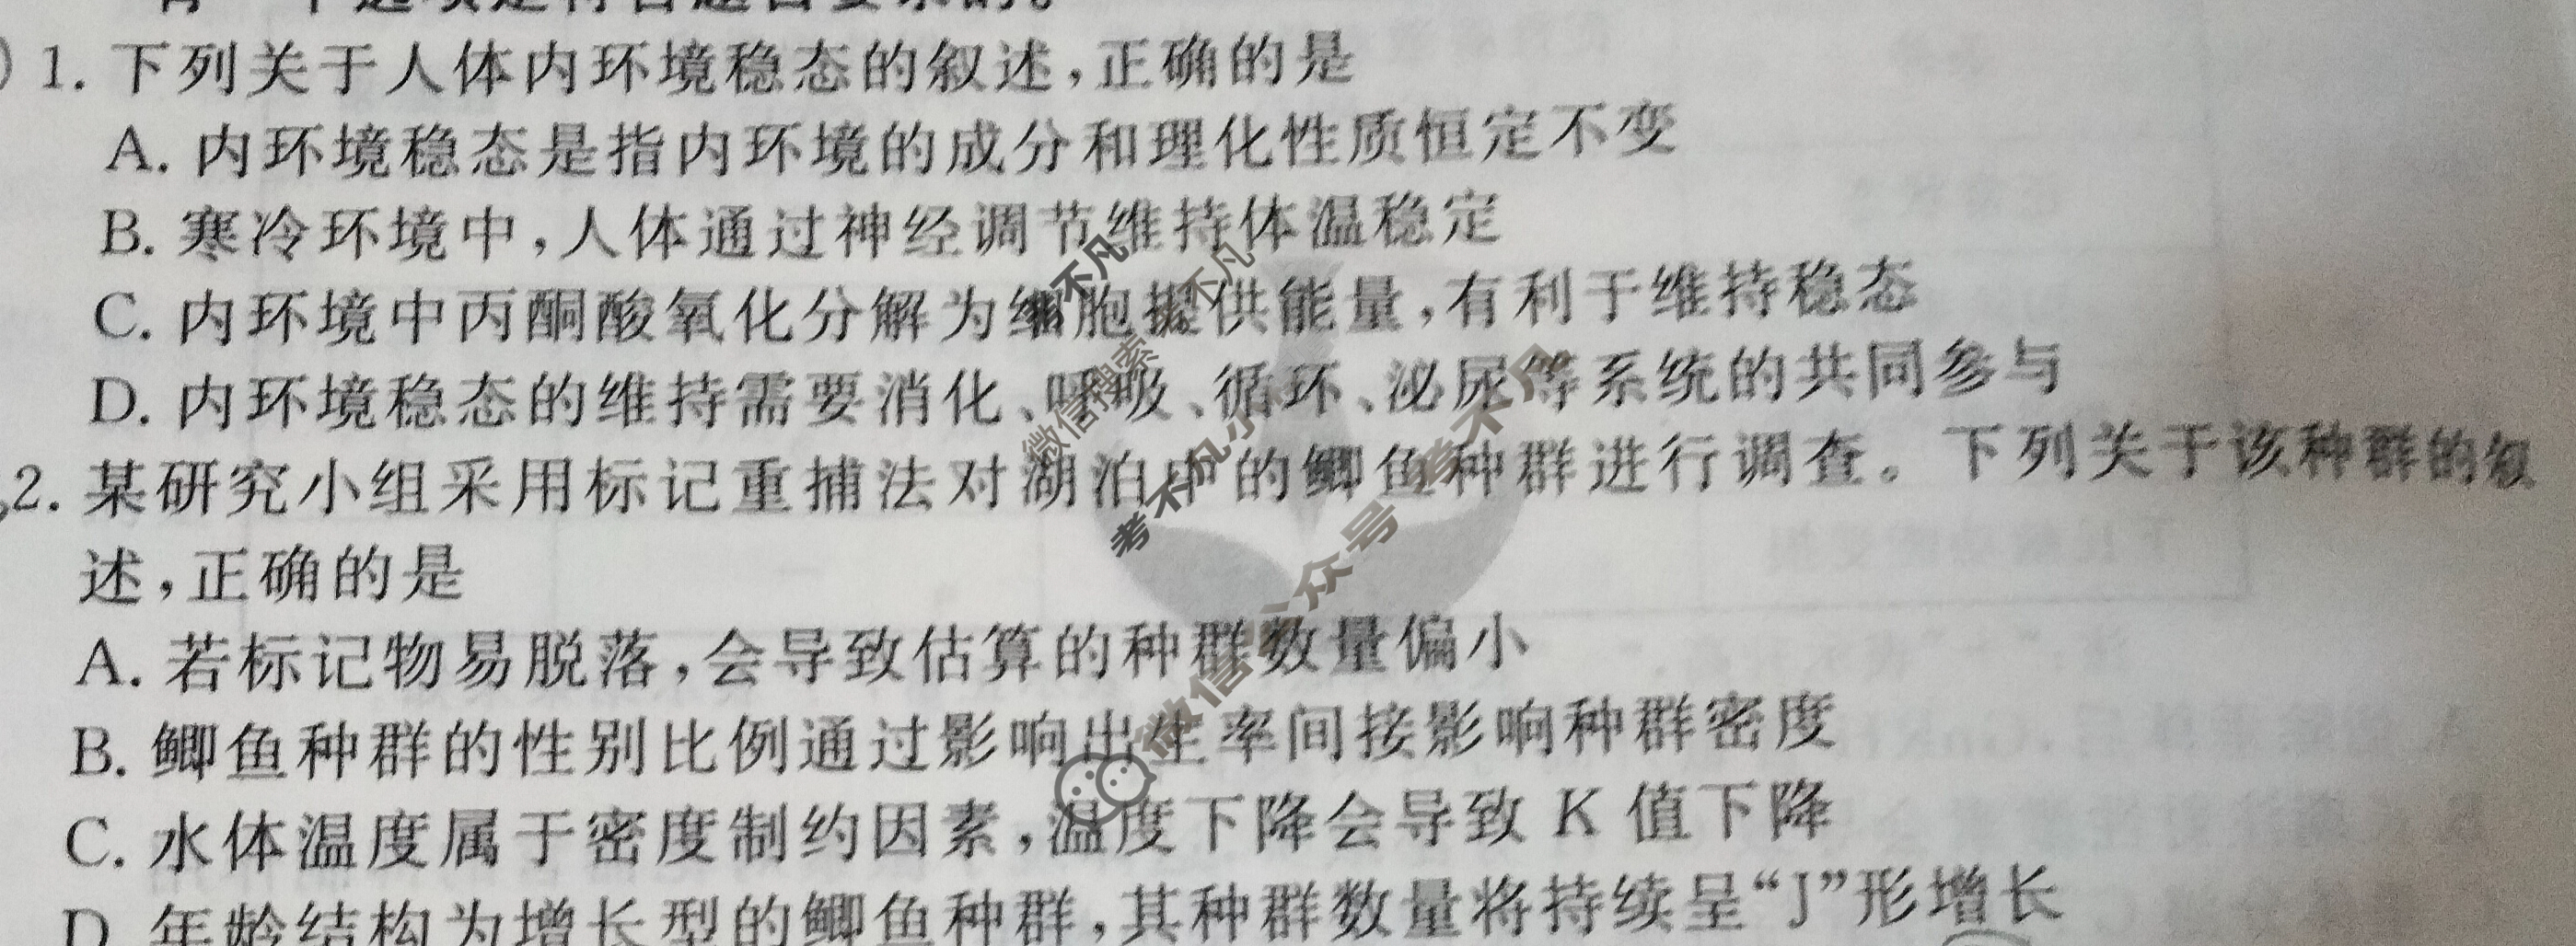 1. 下列关于人体内环境稳态的叙述,正确的是
A. 内环境稳态是指内环境的成分和理化性质恒定不变
B. 寒冷环境中,人体通过神经调节维持体温稳定
C. 内环境中丙酮酸氧化分解为细胞提供能量,有利于维持稳态
D. 内环境稳态的维持需要消化、呼吸、循环、泌尿等系统的共同参与
2. 某研究小组采用标记重捕法对湖泊中的鲫鱼种群进行调查。下列关于该种群的叙
述,正确的是
A. 若标记物易脱落,会导致估算的种群数量偏小
B. 鲫鱼种群的性别比例通过影响出生率间接影响种群密度
C. 水体温度属于密度制约因素,温度下降会导致 K 值下降
D. 年龄结构为增长型的鲫鱼种群,其种群数量将持续呈“J”形增长
微信搜索
考不凡小
微信公众号 考不凡